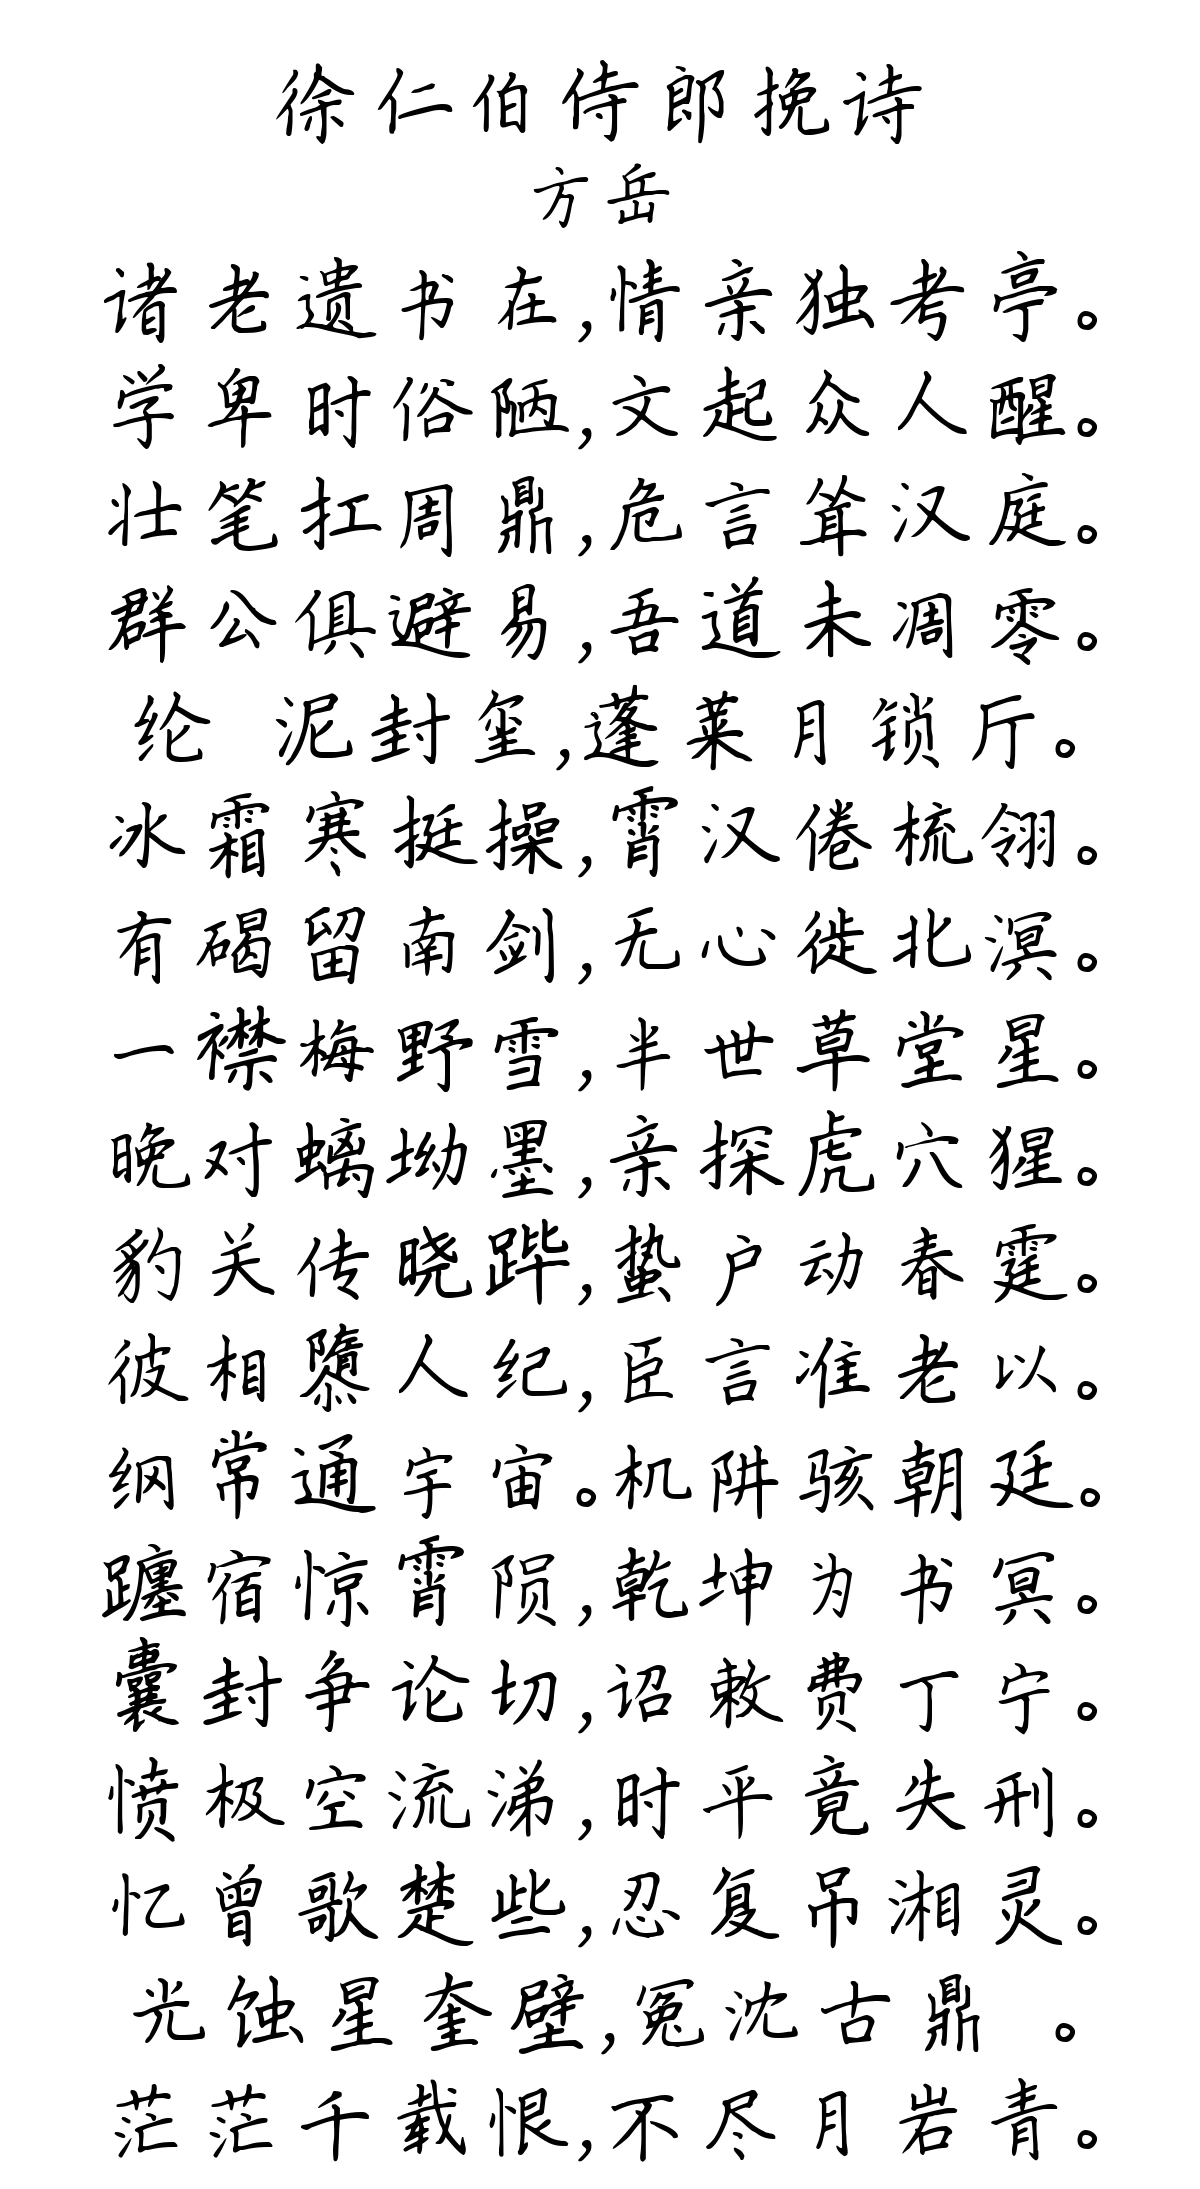 徐仁伯侍郎挽诗
方岳
诸老遗书在,情亲独考亭。
学卑时俗陋,文起众人醒。
壮笔扛周鼎,危言耸汉庭。
群公俱避易,吾道未凋零。
纶 泥封玺,蓬莱月锁厅。
冰霜寒挺操,霄汉倦梳翎。
有碣留南剑,无心徙北溟。
一襟梅野雪,半世草堂星。
晚对螭坳墨,亲探虎穴猩。
豹关传晓跸,蛰户动春霆。
彼相隳人纪,臣言准老以。
纲常通宇宙。机阱骇朝廷。
躔宿惊霄陨,乾坤为书冥。
囊封争论切,诏敕费丁宁。
愤极空流涕,时平竟失刑。
忆曾歌楚些,忍复吊湘灵。
光蚀星奎壁,冤沈古鼎 。
茫茫千载恨,不尽月岩青。